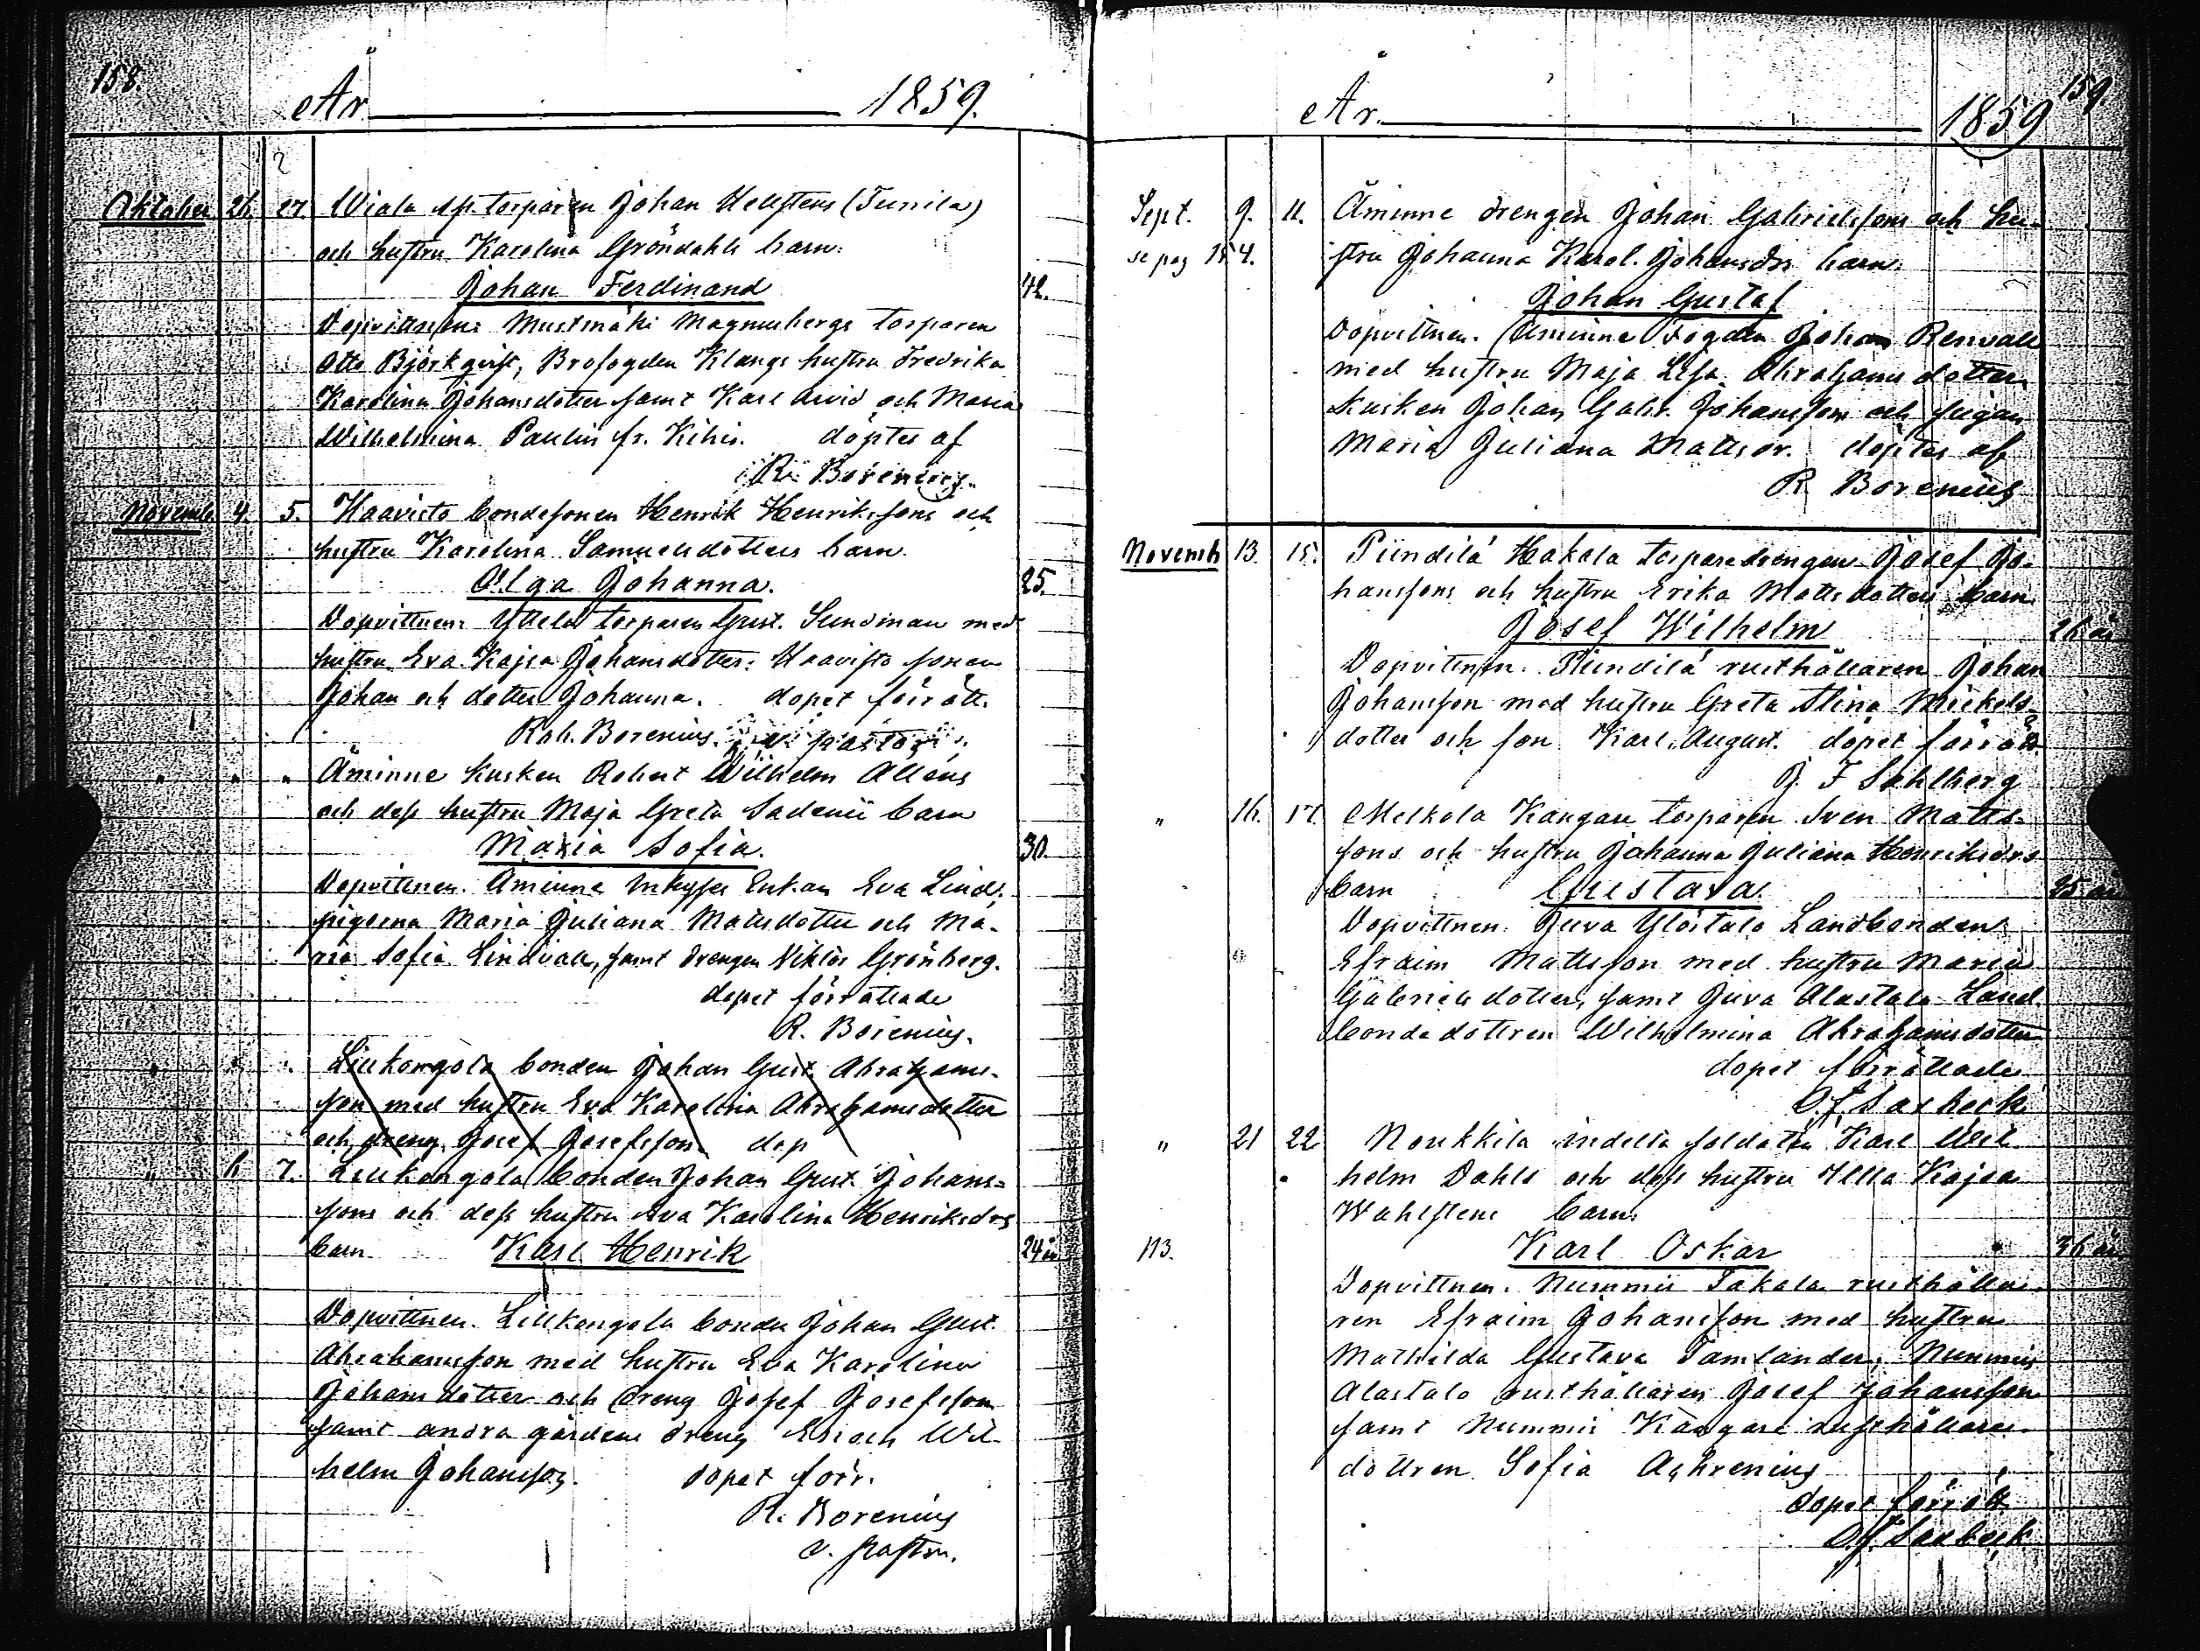 158.
År 1859.
Oktober 26. 27. Wiala sp. torparen Johan Hellstens (Tunila)
och hustru Karolina Gröndahls barn:
Johan Ferdinand 42.
Dopvittnena Mustmäki Magnusbergs torparen
Otto Björkqvist, Brofogden Klangs hustru Fredrika
Karolina Johansdotter samt Karl Arvid och Maria
Wilhelmina Paulin fr. Kihis. döptes af
R. Borenius.
Novemb. 4. 5. Haavisto bondesonen Henrik Henrikssons och
hustru Karolina Samuelsdotters barn.
Olga Johanna. 25.
Dopvittnen: Yttelä torparen Gust. Sundman med
hustru Eva Kajsa Johansdotter: Haavisto sonen
Johan och dotter Johanna. dopet förrätt.
Rob. Borenius. v. pastor.
" " " Åminne kusken Robert Wilhelm Alléns
och dess hustru Maja Greta Sadenii barn
Maria Sofia. 30.
Dopvittnen. Åminne Inhyses Enkan Eva Lind,
pigorna Maria Juliana Mattsdotter och Ma-
ria Sofia Lindvall, samt drengen Niklas Grönberg.
dopet förrättade
R. Borenius.
" " " Liukongola bonden Johan Gust. Abrahams-
son med hustru Eva Karolina Abrahamsdotter
och dreng Josef Josefsson dop
" 6 7. Liukongola bonden Johan Gust. Johans-
sons och dess hustru Eva Karolina Henriksdrs
barn Karl Henrik 24 år
Dopvittnen. Liukongola bonde Johan Gust.
Abrahamsson med hustru Eva Karolina
Johansdotter och dreng Josef Josefsson
samt andra gårdens dreng Erich Wil-
helm Johansson. dopet förr.
R. Borenius
v. pastor.
159.
År. 1859
Sept. 9. 11. Åminne drengen Johan Gabrielssons och hu-
se pag 154. stru Johanna Karol. Johansdrs barn:
Johan Gustaf
Dopvittnen. Åminne Fogden Johan Renvall
med hustru Maja Lisa Abrahamsdotter
Kusken Johan Gabr. Johansson och pigan
Maria Juliana Mattsdr. döptes af
R Borenius
Novemb 13. 15. Piindilä Hakala torparedrengen Josef Jo-
hanssons och hustru Erika Mattsdotters barn
Josef Wilhelm 26 år
Dopvittnen. Piindilä rusthållaren Johan
Johansson med hustru Greta Stina Mickels-
dotter och son Karl August. dopet förrätt
J. F Sahlberg
" 16. 17. Melkola Kangare torparen Sven Matts-
sons och hustru Johanna Juliana Henriksdrs
barn Gustava 35 år
Dopvittnen: Juva Ylöstalo Landbonden
Efraim Mattsson med hustru Maria
Gabrielsdotter, samt Juva Alastalo Land
bonde dottren Wilhelmina Abrahamsdotter
dopet förrättade
O. f. Saxbeck
" 21 22 Noukkila indelta soldaten Karl Wil
helm Dahls och dess hustru Ulla Kajsa
Wahlstens barn:
113. Karl Oskar 36 år
Dopvittnen. Nummis Takala rusthålla-
ren Efraim Johansson med hustru
Mathilda Gustava Tamlander, Nummis
Alastalo rusthållaren Josef Johansson
samt Nummis Kangare rusthållare-
dottren Sofia Aghrenius
dopet förrätt
O. f. Saxbeck